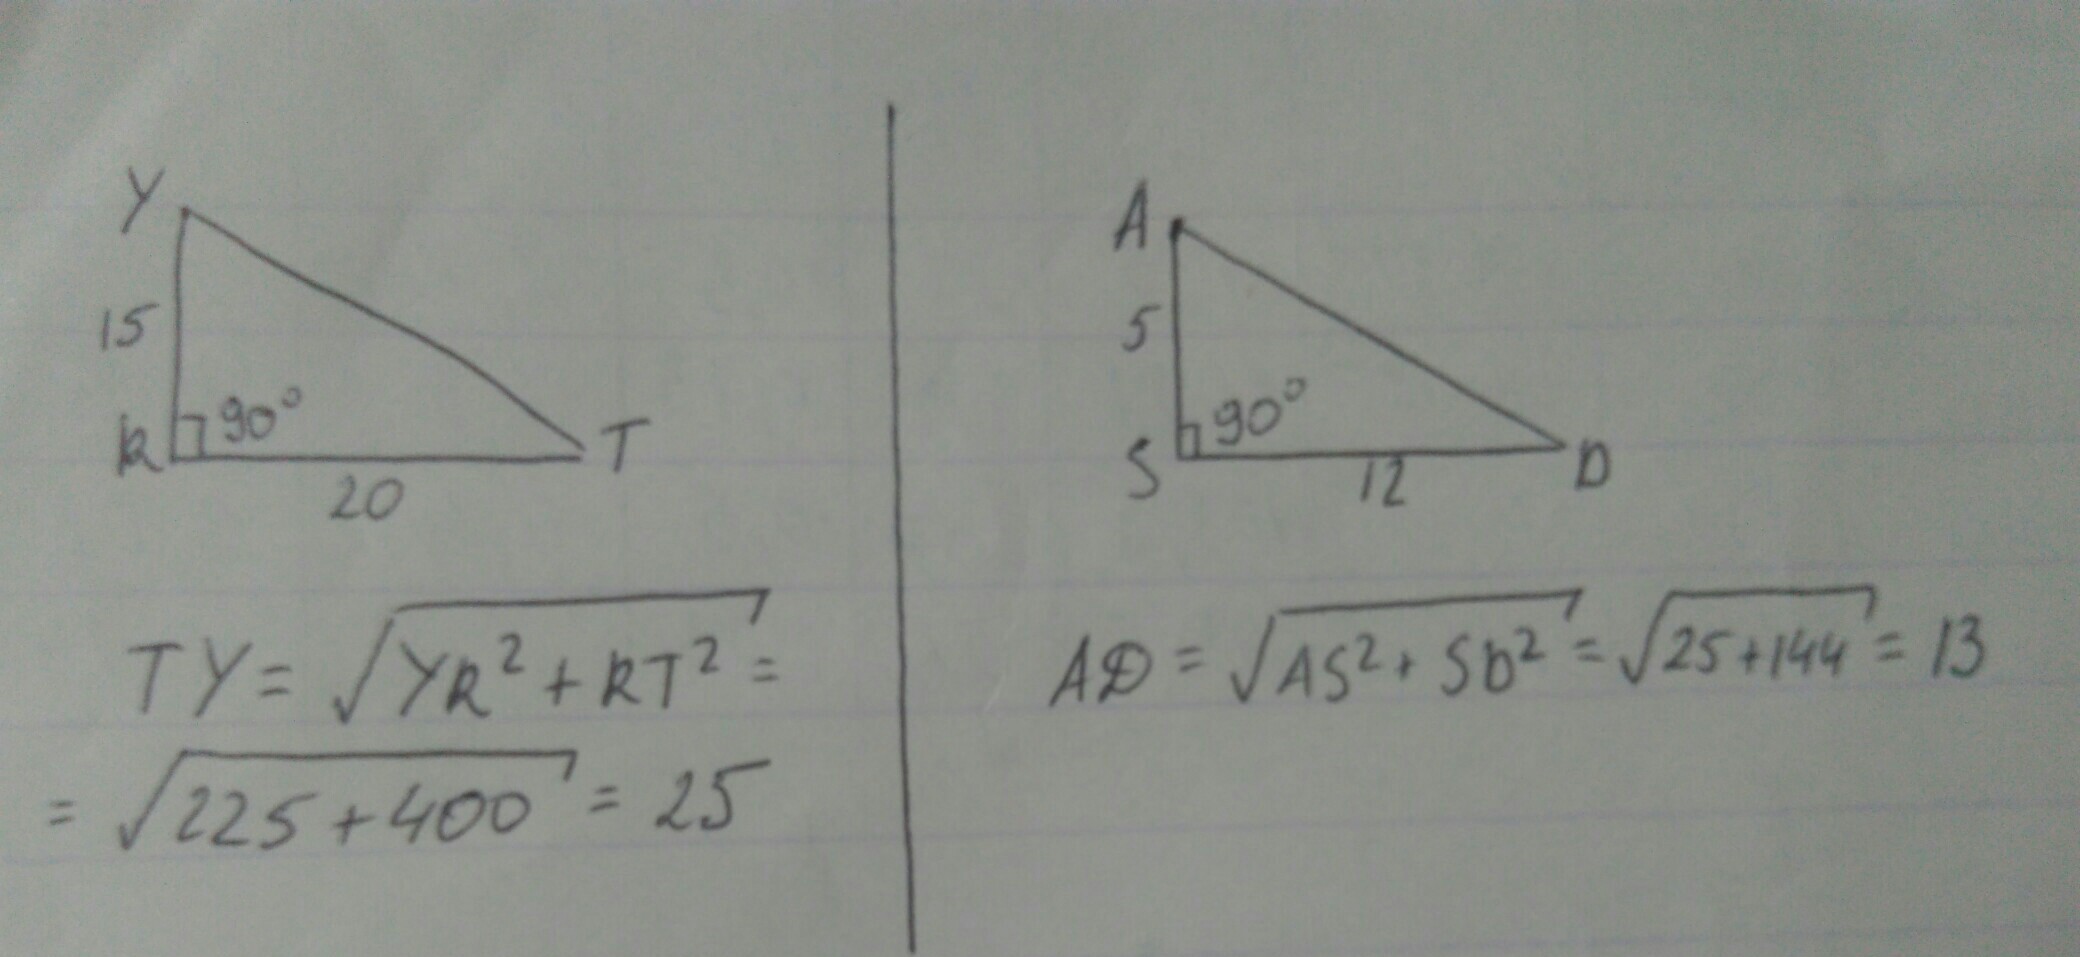 Y
15
R
90°
T
20
TY = √YR² + RT² =
= √225 + 400 = 25
A
5
S
90°
D
12
AD = √AS² + SD² = √25 + 144 = 13